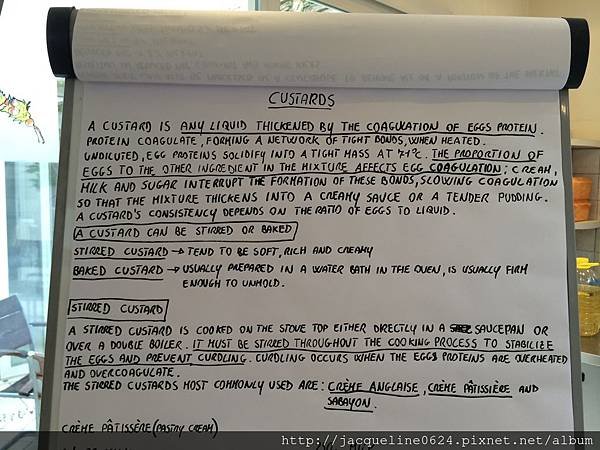 CUSTARDS
A CUSTARD IS ANY LIQUID THICKENED BY THE COAGULATION OF EGGS PROTEIN.
PROTEIN COAGULATE, FORMING A NETWORK OF TIGHT BONDS, WHEN HEATED.
UNDILUTED, EGG PROTEINS SOLIDIFY INTO A TIGHT MASS AT 71°C. THE PROPORTION OF
EGGS TO THE OTHER INGREDIENT IN THE MIXTURE AFFECTS EGG COAGULATION; CREAM,
MILK AND SUGAR INTERRUPT THE FORMATION OF THESE BONDS, SLOWING COAGULATION
SO THAT THE MIXTURE THICKENS INTO A CREAMY SAUCE OR A TENDER PUDDING.
A CUSTARD'S CONSISTENCY DEPENDS ON THE RATIO OF EGGS TO LIQUID.
A CUSTARD CAN BE STIRRED OR BAKED
STIRRED CUSTARD → TEND TO BE SOFT, RICH AND CREAMY
BAKED CUSTARD → USUALLY PREPARED IN A WATER BATH IN THE OVEN, IS USUALLY FIRM
ENOUGH TO UNMOLD.
STIRRED CUSTARD
A STIRRED CUSTARD IS COOKED ON THE STOVE TOP EITHER DIRECTLY IN A SAUCEPAN OR
OVER A DOUBLE BOILER. IT MUST BE STIRRED THROUGHOUT THE COOKING PROCESS TO STABILIZE
THE EGGS AND PREVENT CURDLING. CURDLING OCCURS WHEN THE EGGS PROTEINS ARE OVERHEATED
AND OVERCOAGULATE.
THE STIRRED CUSTARDS MOST COMMONLY USED ARE: CRÈME ANGLAISE, CRÈME PÂTISSIÈRE AND
SABAYON.
CRÈME PÂTISSÈRE (PASTRY CREAM)
http://jacqueline0624.pixnet.net/album